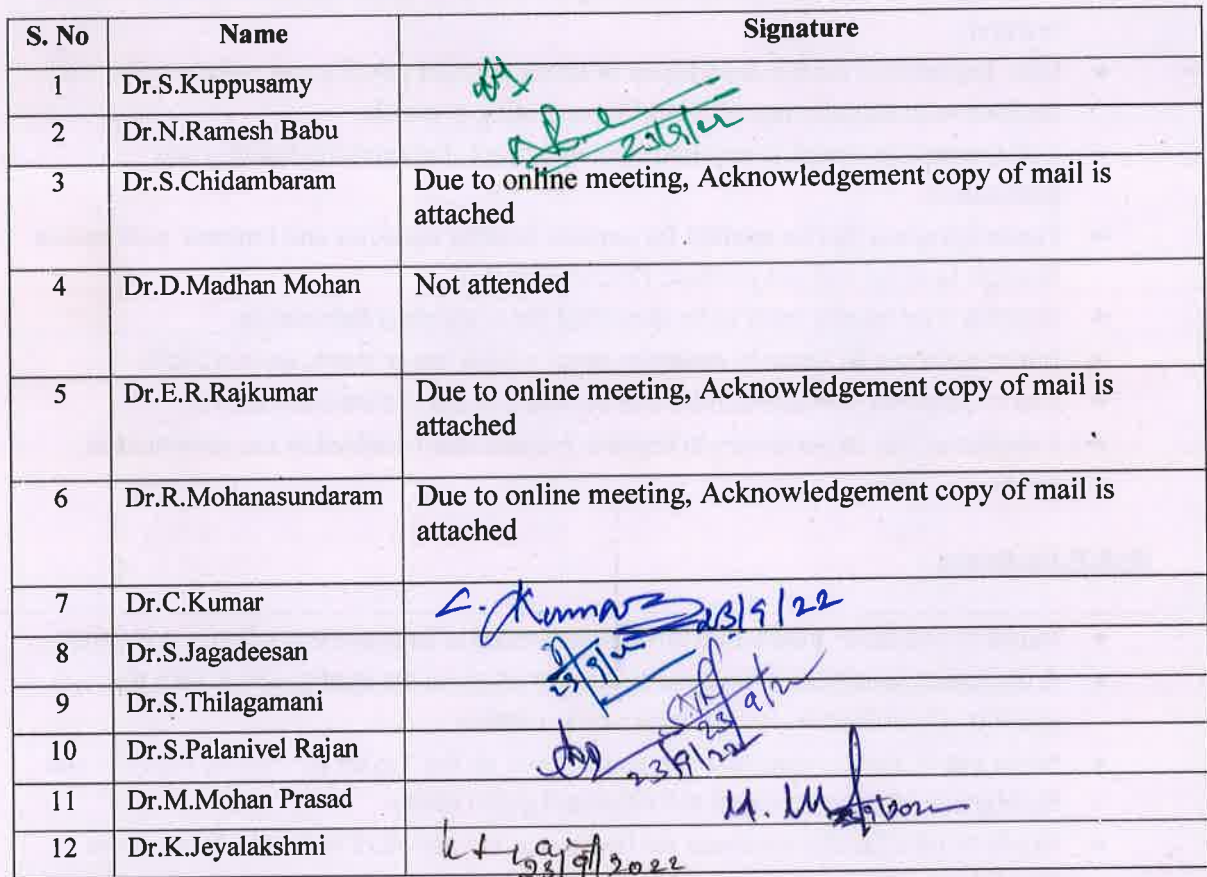 S. No Name Signature
1 Dr.S.Kuppusamy
2 Dr.N.Ramesh Babu 23/9/22
3 Dr.S.Chidambaram Due to online meeting, Acknowledgement copy of mail is
attached
4 Dr.D.Madhan Mohan Not attended
5 Dr.E.R.Rajkumar Due to online meeting, Acknowledgement copy of mail is
attached
6 Dr.R.Mohanasundaram Due to online meeting, Acknowledgement copy of mail is
attached
7 Dr.C.Kumar C. Kumar 23/9/22
8 Dr.S.Jagadeesan
9 Dr.S.Thilagamani 23/9/22
10 Dr.S.Palanivel Rajan 23/9/22
11 Dr.M.Mohan Prasad
12 Dr.K.Jeyalakshmi 23/9/2022